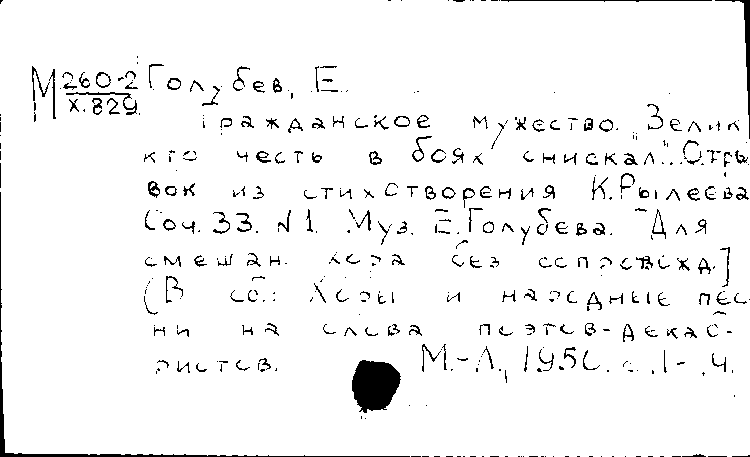 М 260-2 Голубев, Е.
Х.829
Гражданское мужество. "Велик
кто честь в боях снискал." Отры
вок из стихотворения К.Рылеева
Соч. 33. №1. Муз. Е.Голубева. [Для
смешан. хора без сопровожд.]
(В сб.: Хоры и народные пес
ни на слова поэтов-декаб-
ристов. М.-Л., 1950. с.